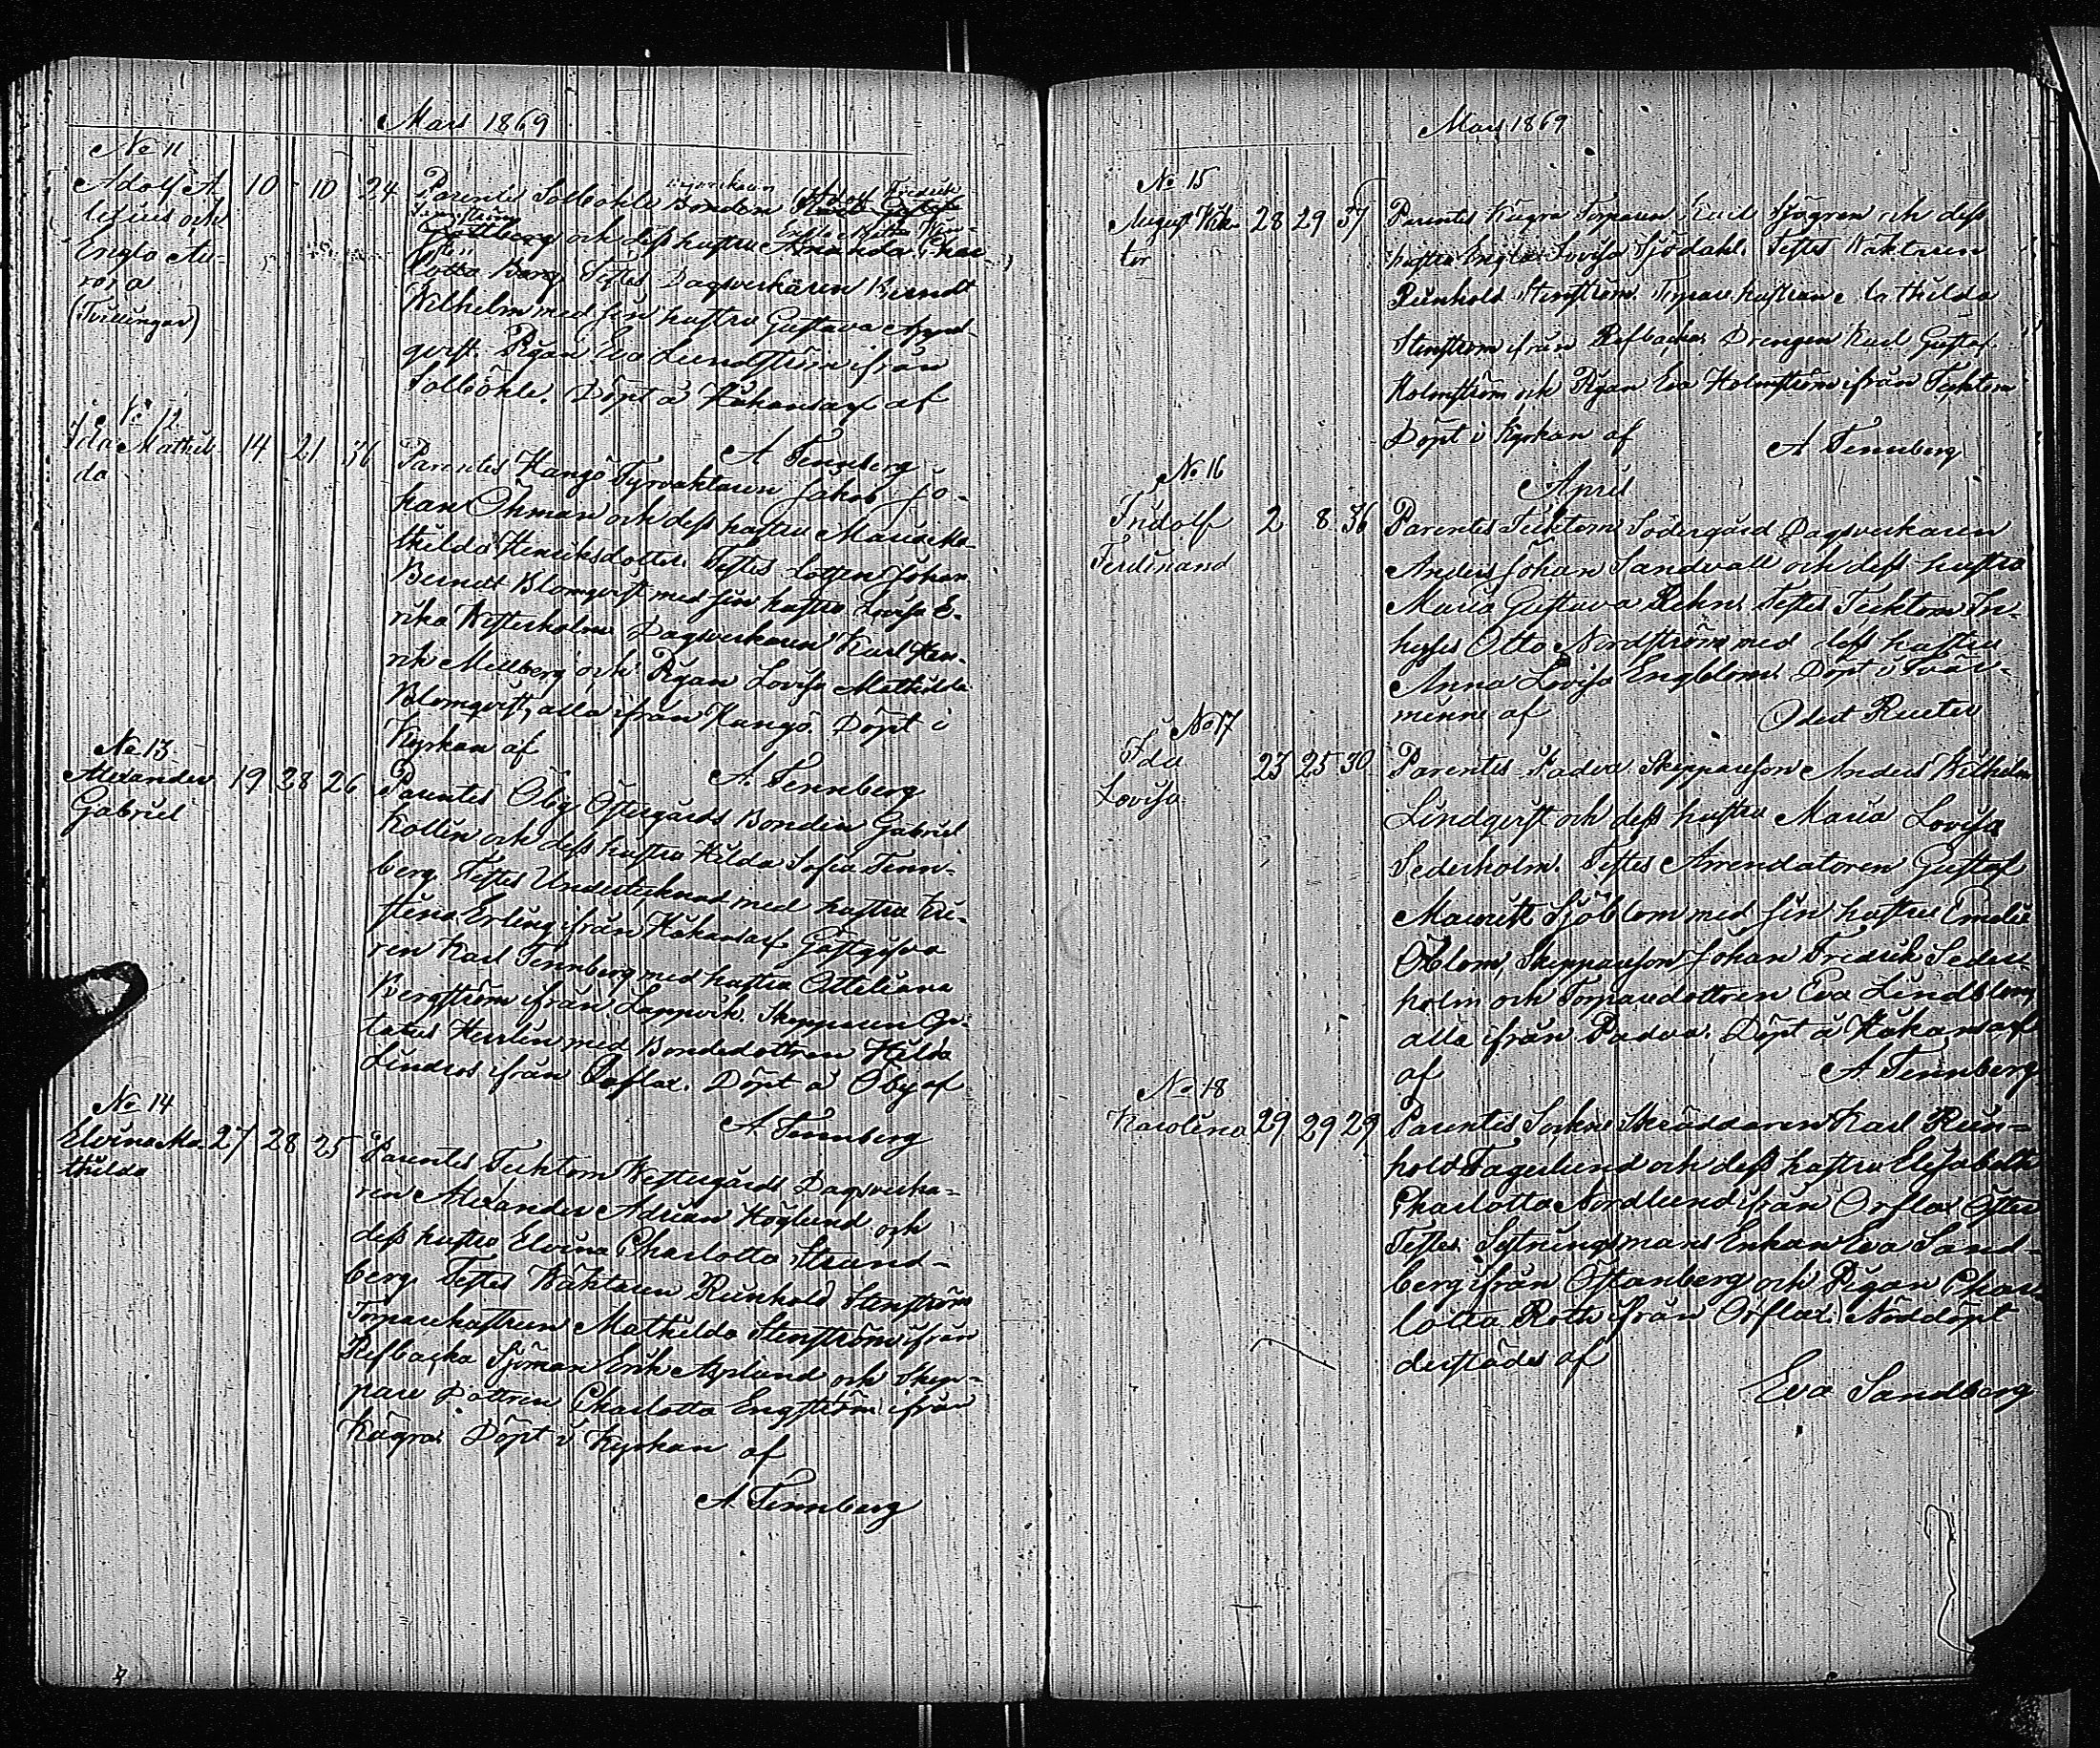 Mars 1869
No 11
Adolf A-
lexius och
Engla Au-
rora
(Tvillingar)
10 10 24
Parentes Solböhle Bonden Adolf Fredrik
och dess hustru Amanda Char-
lotta Berg. Testes Dagsverkaren Berndt
Wilhelm med sin hustru Gustava
qvist. Pigan Eva Lundström ifrån
Solböhle. Döpt å Håkansarf af
A Tennberg
No 12
Ida Mathil-
da
14 21 36
Parentes Hangö Fyrvaktaren Jakob Jo-
han Öhman och dess hustru Maria Ma-
thilda Henriksdotter. Testes Lotsen Johan
Berndt Blomqvist med sin hustru Lovisa E-
rika Westerholm Dagsverkaren Karl Hen-
rik Mellberg och Pigan Lovisa Mathilda
Blomqvist, alla ifrån Hangö. Döpt i
Kyrkan af
A. Tennberg
No 13
Alexander
Gabriel
19 28 26
Parentes Öby Östergårds Bonden Gabriel
Kollin och dess hustru Hilda Sofia Tenn-
berg. Testes Undertecknad med hustru Kri-
stina Erling ifrån Håkansarf Gästgifva
ren Karl Tennberg med hustru Ottiliana
Bergström ifrån Lappvik. Skepparen Op-
tatus Herlin med Bondedottren Hilda
Lindros ifrån Daflax. Döpt å Öby af
A Tennberg
No 14
Elvina Ma-
thilda
27 28 25
Parentes Tecktom Westergårds Dagsverka-
ren Alexander Adrian Höglund och
dess hustru Elvina Charlotta Strand-
berg. Testes Wäktaren Reinhold Stenström
Torparehustrun Mathilda Stenström ifrån
Refbacka Sjöman Erik Asplund och Skep-
pare Dottren Charlotta Engström ifrån
Kägra. Döpt i Kyrkan af
A Tennberg
Mars 1869
No 15
August Vik-
tor
28 29 37
Parentes Kägra Torparen Karl Sjögren och dess
hustru Engla Lovisa Sjödahl. Testes Wäktaren
Reinhold Stenström Torpare hustrun Mathilda
Stenström ifrån Refbacka Drengen Karl Gustaf
Holmström och Pigan Eva Holmström ifrån Tecktom
Döpt i Kyrkan af
A Tennberg
April
No 16
Indolf
Ferdinand
2 8 36
Parentes Tecktom Södergård Dagsverkaren
Anders Johan Sandvall och dess hustru
Maria Gustava Rehn. Testes Tecktom In-
hyses Otto Nordström med dess hustru
Anna Lovisa Engblom. Döpt i Tvär-
minne af
Odert Reuter
No 17
Ida
Lovisa
23 25 30
Parentes Padva Skepparson Anders Wilhelm
Lindqvist och dess hustru Maria Lovisa
Sederholm. Testes Arrendatoren Gustaf
Mauritz Sjöblom med sin hustru Emelie
Öblom, Skepparson Johan Fredrik Seder-
holm och Torparedottren Eva Lindblom
alla ifrån Padva. Döpt å Håkansarf
af
A Tennberg
No 18
Karolina
29 29 29
Parentes Sockne Skräddaren Karl Rein-
hold Fagerlund och dess hustru Elisabeth
Charlotta Nordlund ifrån Orflax Öster
Testes. Sextningsmans Enkan Eva Sand-
berg ifrån Östanberg och Pigan Char
lotta Roth ifrån Orflax. Nöddöpt
derstädes af
Eva Sandberg